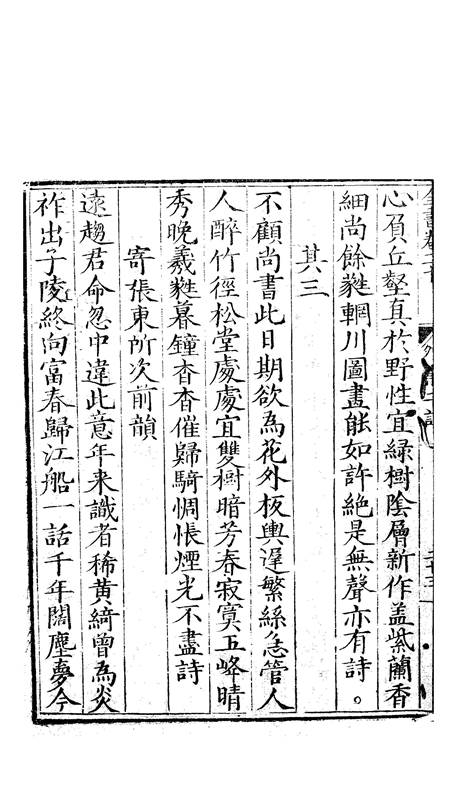 心負丘壑真於野性宜綠樹陰層新作蓋紫蘭香
細尚餘蕤輞川圖畫能如許絕是無聲亦有詩。
其三
不顧尚書此日期欲為花外板輿遲繁絲急管人
人醉竹徑松堂處處宜雙樹暗芳春寂寞五峰晴
秀晚羲蕤暮鐘杳杳催歸騎惆悵煙光不盡詩
寄張東所次前韻
遠趨君命忽中違此意年來識者稀黃綺曾為炎
祚出子陵終向富春歸江船一話千年闊塵夢今